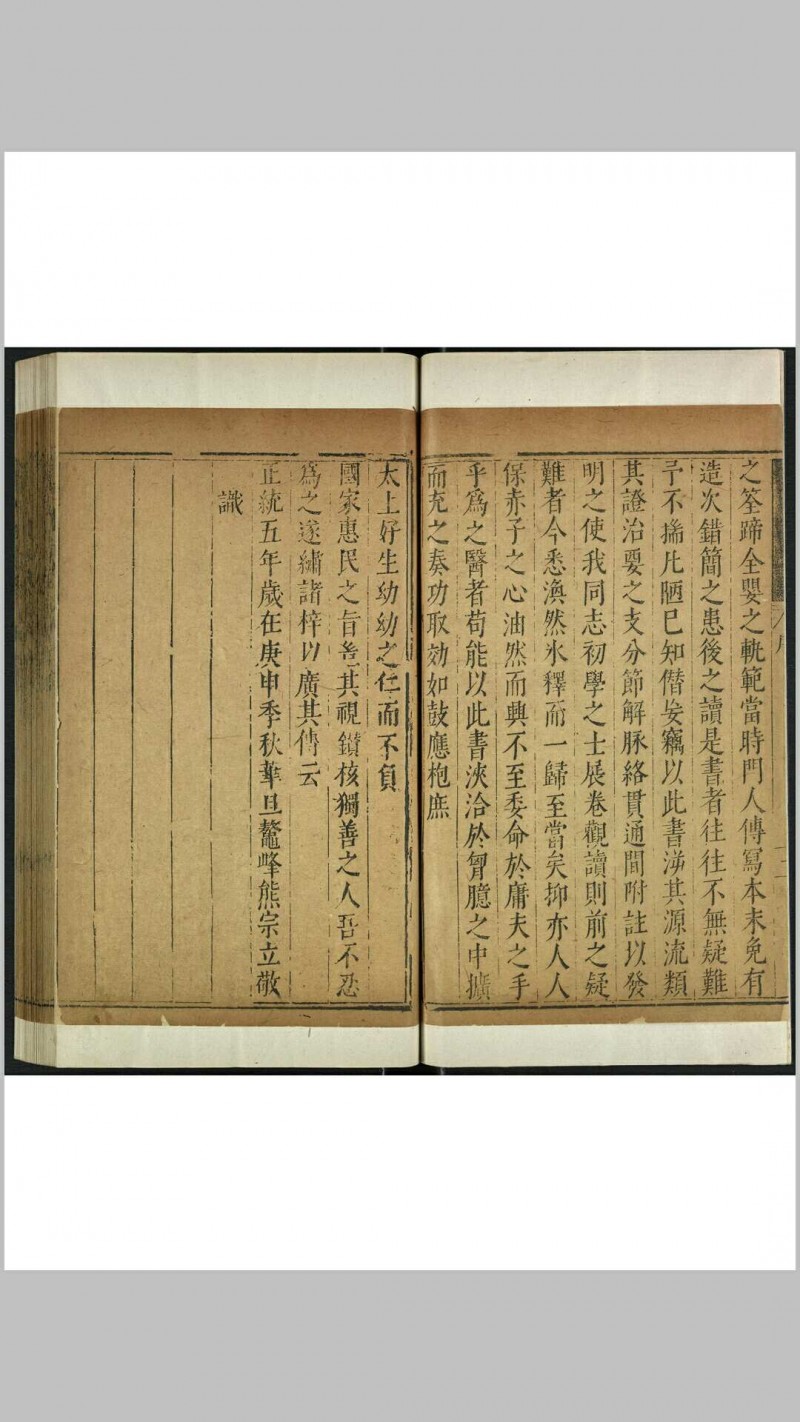 之筌蹄全嬰之軌範當時門人傳寫本末免有
造次錯簡之患後之讀是書者往往不無疑難
予不揣凡陋已知僭妄竊以此書泝其源流類
其證治要之支分節解脉絡貫通間附註以發
明之使我同志初學之士展卷觀讀則前之疑
難者今悉渙然氷釋而一歸至當矣抑亦人人
保赤子之心油然而興不至委命於庸夫之手
乎爲之醫者苟能以此書浹洽於胷臆之中擴
而充之奏功取効如鼓應枹庶
太上好生幼幼之仁而不負
國家惠民之旨其視鑚核獨善之人吾不忍
爲之遂繡諸梓以廣其傳云
正統五年歲在庚申季秋華旦鰲峰熊宗立敬
識
序